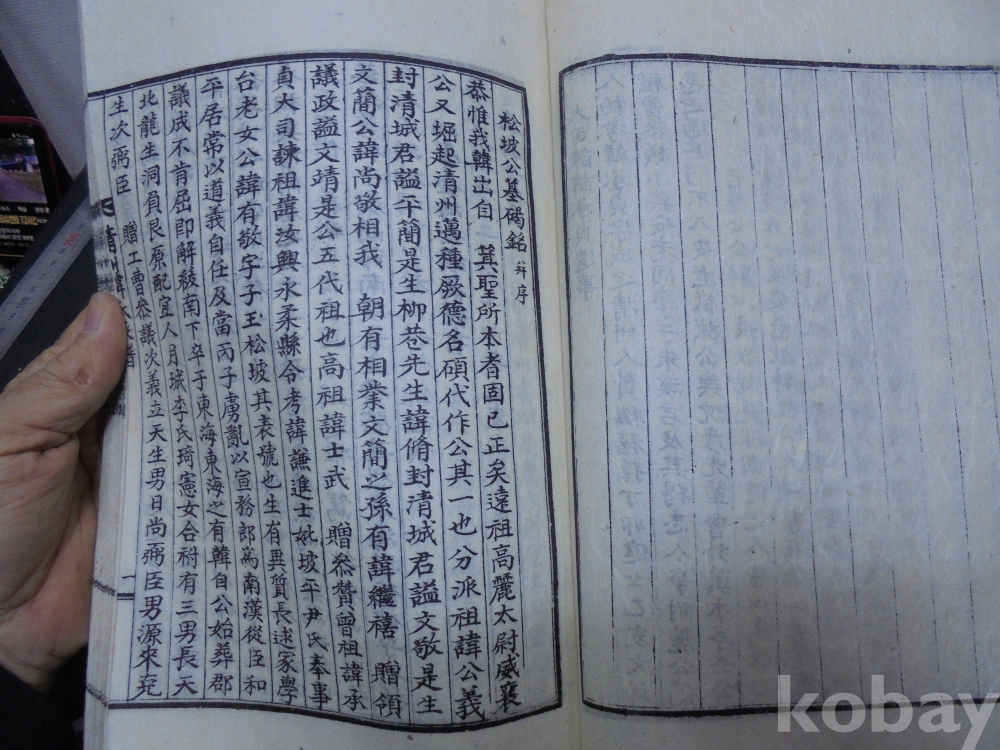 松坡公墓碣銘 并序
恭惟我韓出自 箕聖所本者固已正矣遠祖高麗太尉威襄
公又堀起清州邁種厥德名碩代作公其一也分派祖諱公義
封清城君謚平簡是生柳巷先生諱脩封清城君謚文敬是生
文簡公諱尚敬相我 朝有相業文簡之孫有諱繼禧 贈領
議政謚文靖是公五代祖也高祖諱士武 贈叅贊曾祖諱承
貞大司諫祖諱汝興永柔縣令考諱謙進士妣坡平尹氏奉事
台老女公諱有敬字子玉松坡其表號也生有異質長逑家學
平居常以道義自任及當丙子虜亂以宣務郎爲南漢從臣和
議成不肯屈即解綬南下卒于東海東海之有韓自公始葬郡
北龍生洞負艮原配宜人月城李氏琦憲女合祔有三男長天
生次弼臣 贈工曹叅議次義立天生男日尚弼臣男源來克
一
kobay